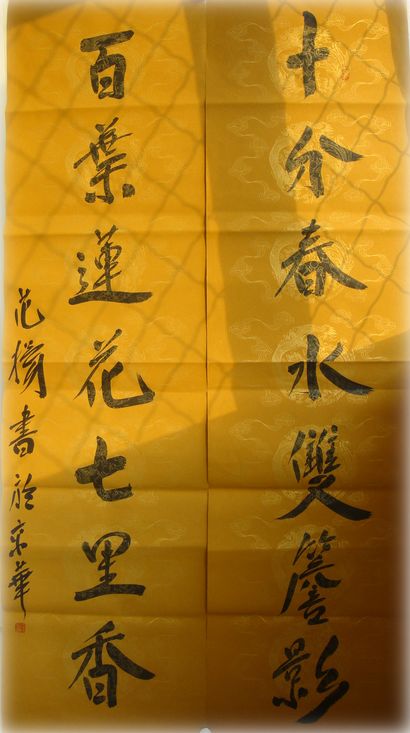 十分春水雙簷影
百葉蓮花七里香
范擣書於京華